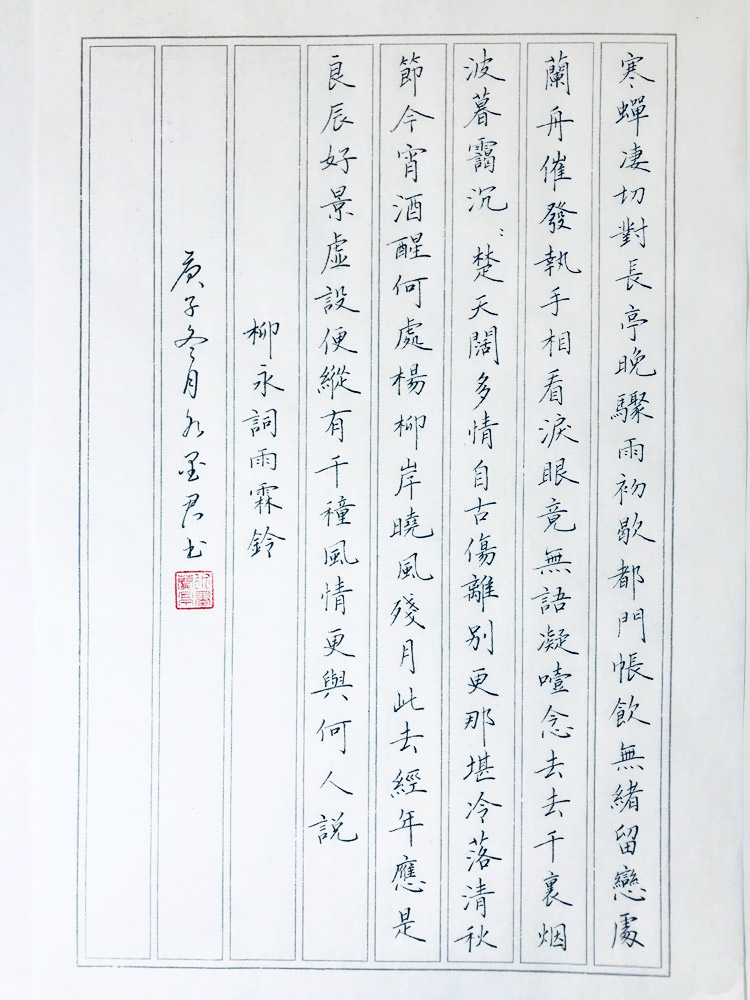 寒蟬凄切對長亭晚驟雨初歇都門帳飲無緒留戀處
蘭舟催發執手相看淚眼竟無語凝噎念去去千裏烟
波暮靄沉〻楚天闊多情自古傷離別更那堪冷落清秋
節今宵酒醒何處楊柳岸曉風殘月此去經年應是
良辰好景虛設便縱有千種風情更與何人説
柳永詞雨霖鈴
庚子冬月水墨君书